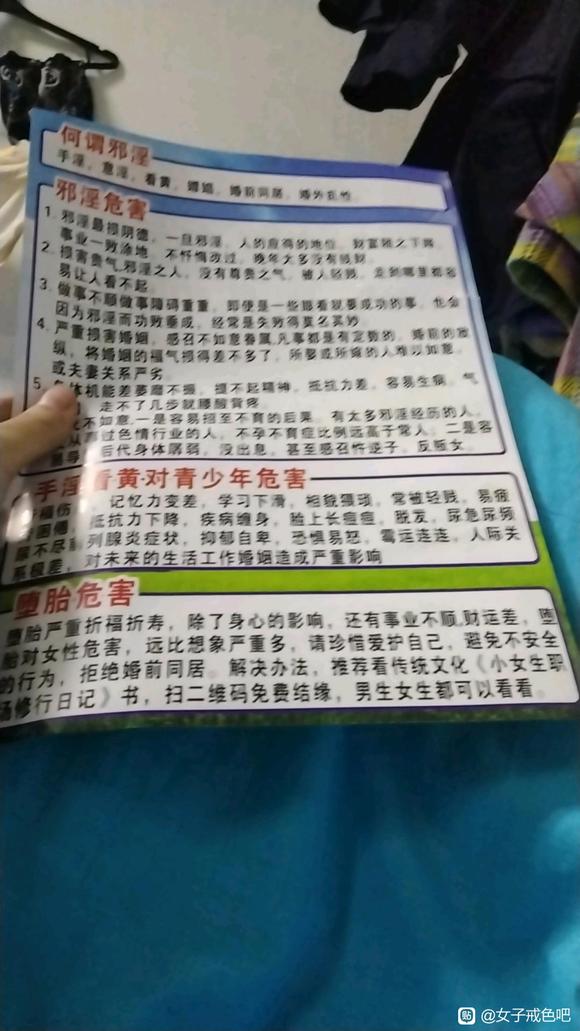 何谓邪淫
手淫，意淫，看黄，嫖娼，婚前同居，婚外乱性。
邪淫危害
1. 邪淫最损阴德，一旦邪淫，人的应得的地位，财富随之下降，
事业一败涂地，不忏悔改过，晚年太多没有钱财。
2. 损害贵气，邪淫之人，没有尊贵之气，被人轻贱，走到哪里都容
易让人看不起。
3. 做事不顺做事障碍重重，即使是一些眼看就要成功的事，也会
因为邪淫而功败垂成，经常是失败得莫名其妙
4. 严重损害婚姻，感召不如意眷属，凡事都是有定数的，婚前的放
纵，将婚姻的福气损得差不多了，所娶或所嫁的人难以如意，
或夫妻关系严劣。
5. 体机能差萎靡不振，提不起精神，抵抗力差，容易生病，气
走不了几步就腰酸背疼。
不如意，一是容易招至不育的后果，有太多邪淫经历的人，
从 过色情行业的人，不孕不育症比例远高于常人，二是容
易导 后代身体孱弱，没出息，甚至感召忤逆子，反叛女。
手淫 看黄·对青少年危害
福伤 ，记忆力变差，学习下滑，相貌猥琐，常被轻贱，易疲
困倦，抵抗力下降，疾病缠身，脸上长痘痘，脱发，尿急尿频
尿不尽 列腺炎症状，抑郁自卑，恐惧易怒，霉运连连，人际关
系极差，对未来的生活工作婚姻造成严重影响
堕胎危害
堕胎严重折福折寿，除了身心的影响，还有事业不顺，财运差，堕
胎对女性危害，远比想象严重多，请珍惜爱护自己，避免不安全
的行为，拒绝婚前同居。解决办法，推荐看传统文化《小女生职
场修行日记》书，扫二维码免费结缘，男生女生都可以看看。
贴 @女子戒色吧